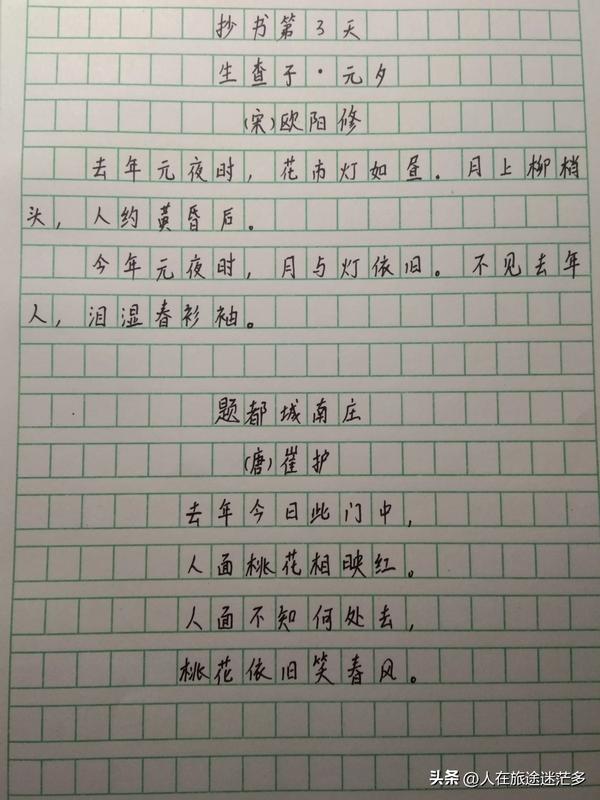 抄书第3天
生查子·元夕
(宋)欧阳修
去年元夜时，花市灯如昼。月上柳梢
头，人约黄昏后。
今年元夜时，月与灯依旧。不见去年
人，泪湿春衫袖。
题都城南庄
(唐)崔护
去年今日此门中，
人面桃花相映红。
人面不知何处去，
桃花依旧笑春风。
头条 @人在旅途迷茫多